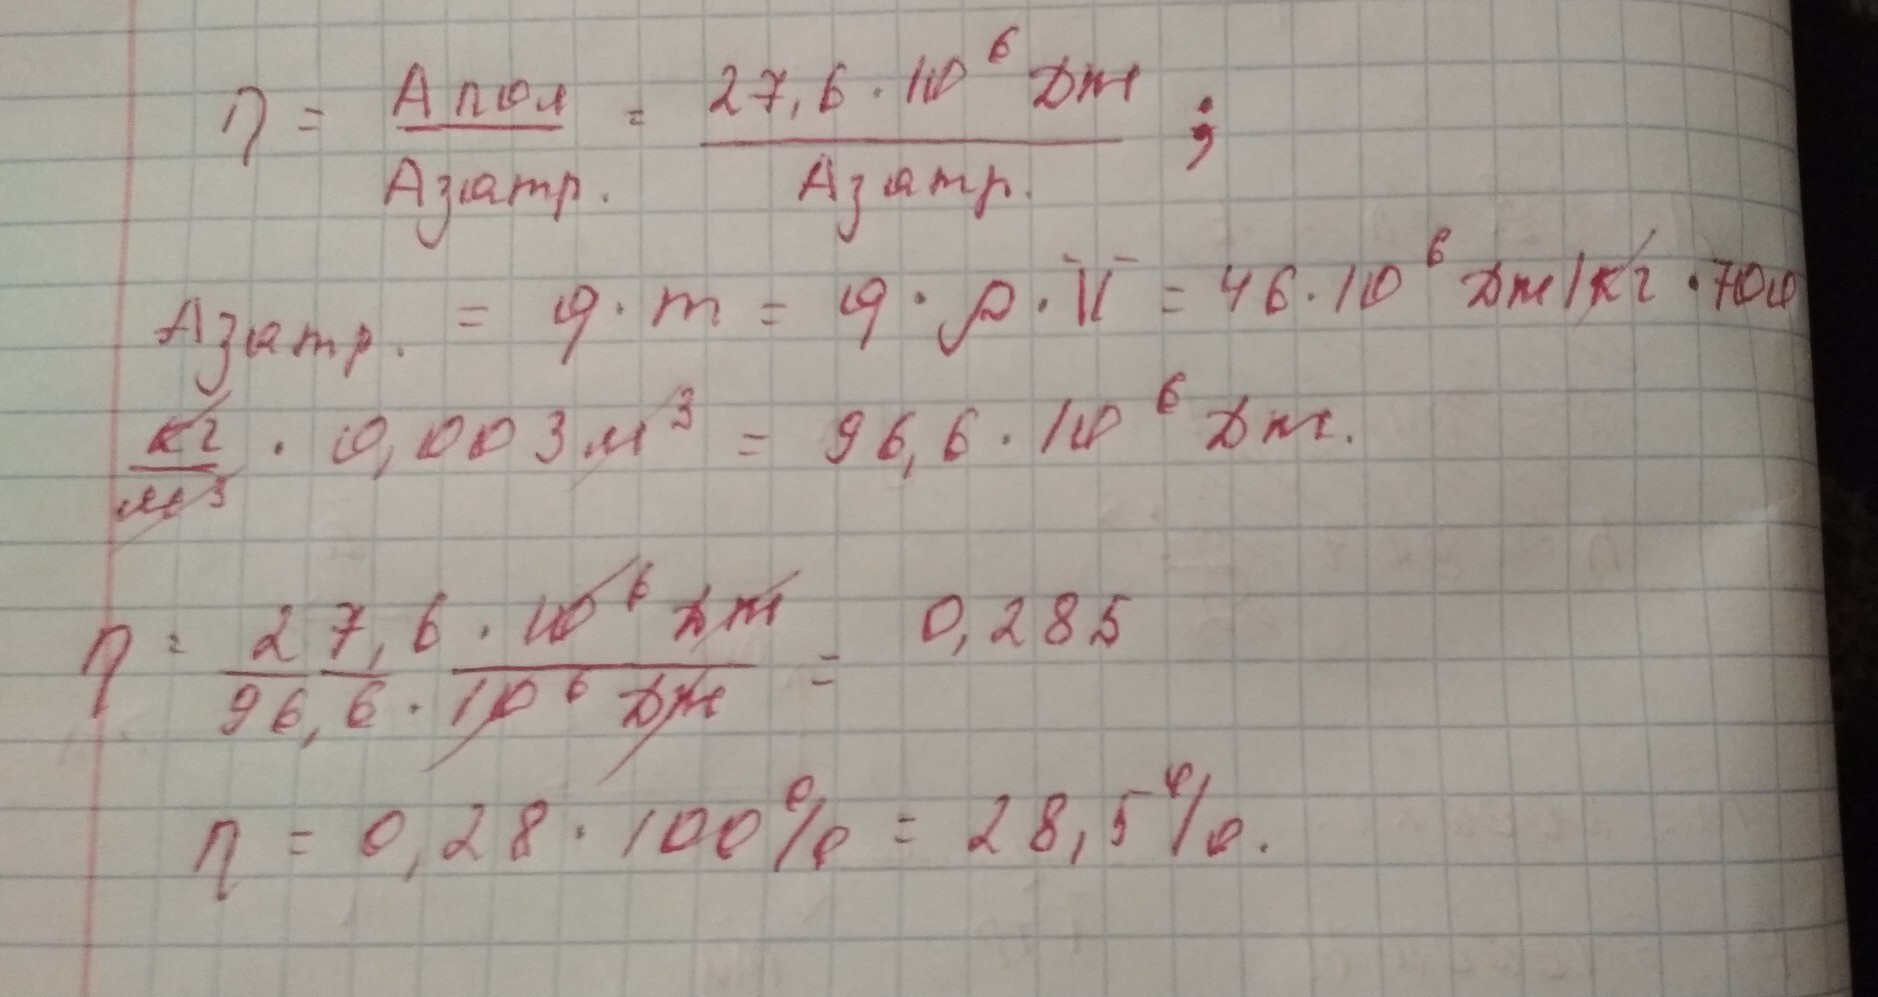 η = Апол / Азатр. = 27,6 · 10⁶ Дж / Азатр. ;
Азатр. = q · m = q · ρ · V = 46 · 10⁶ Дж/кг · 700
кг/м³ · 0,003 м³ = 96,6 · 10⁶ Дж.
η = 27,6 · 10⁶ Дж / 96,6 · 10⁶ Дж = 0,285
η = 0,28 · 100% = 28,5%.